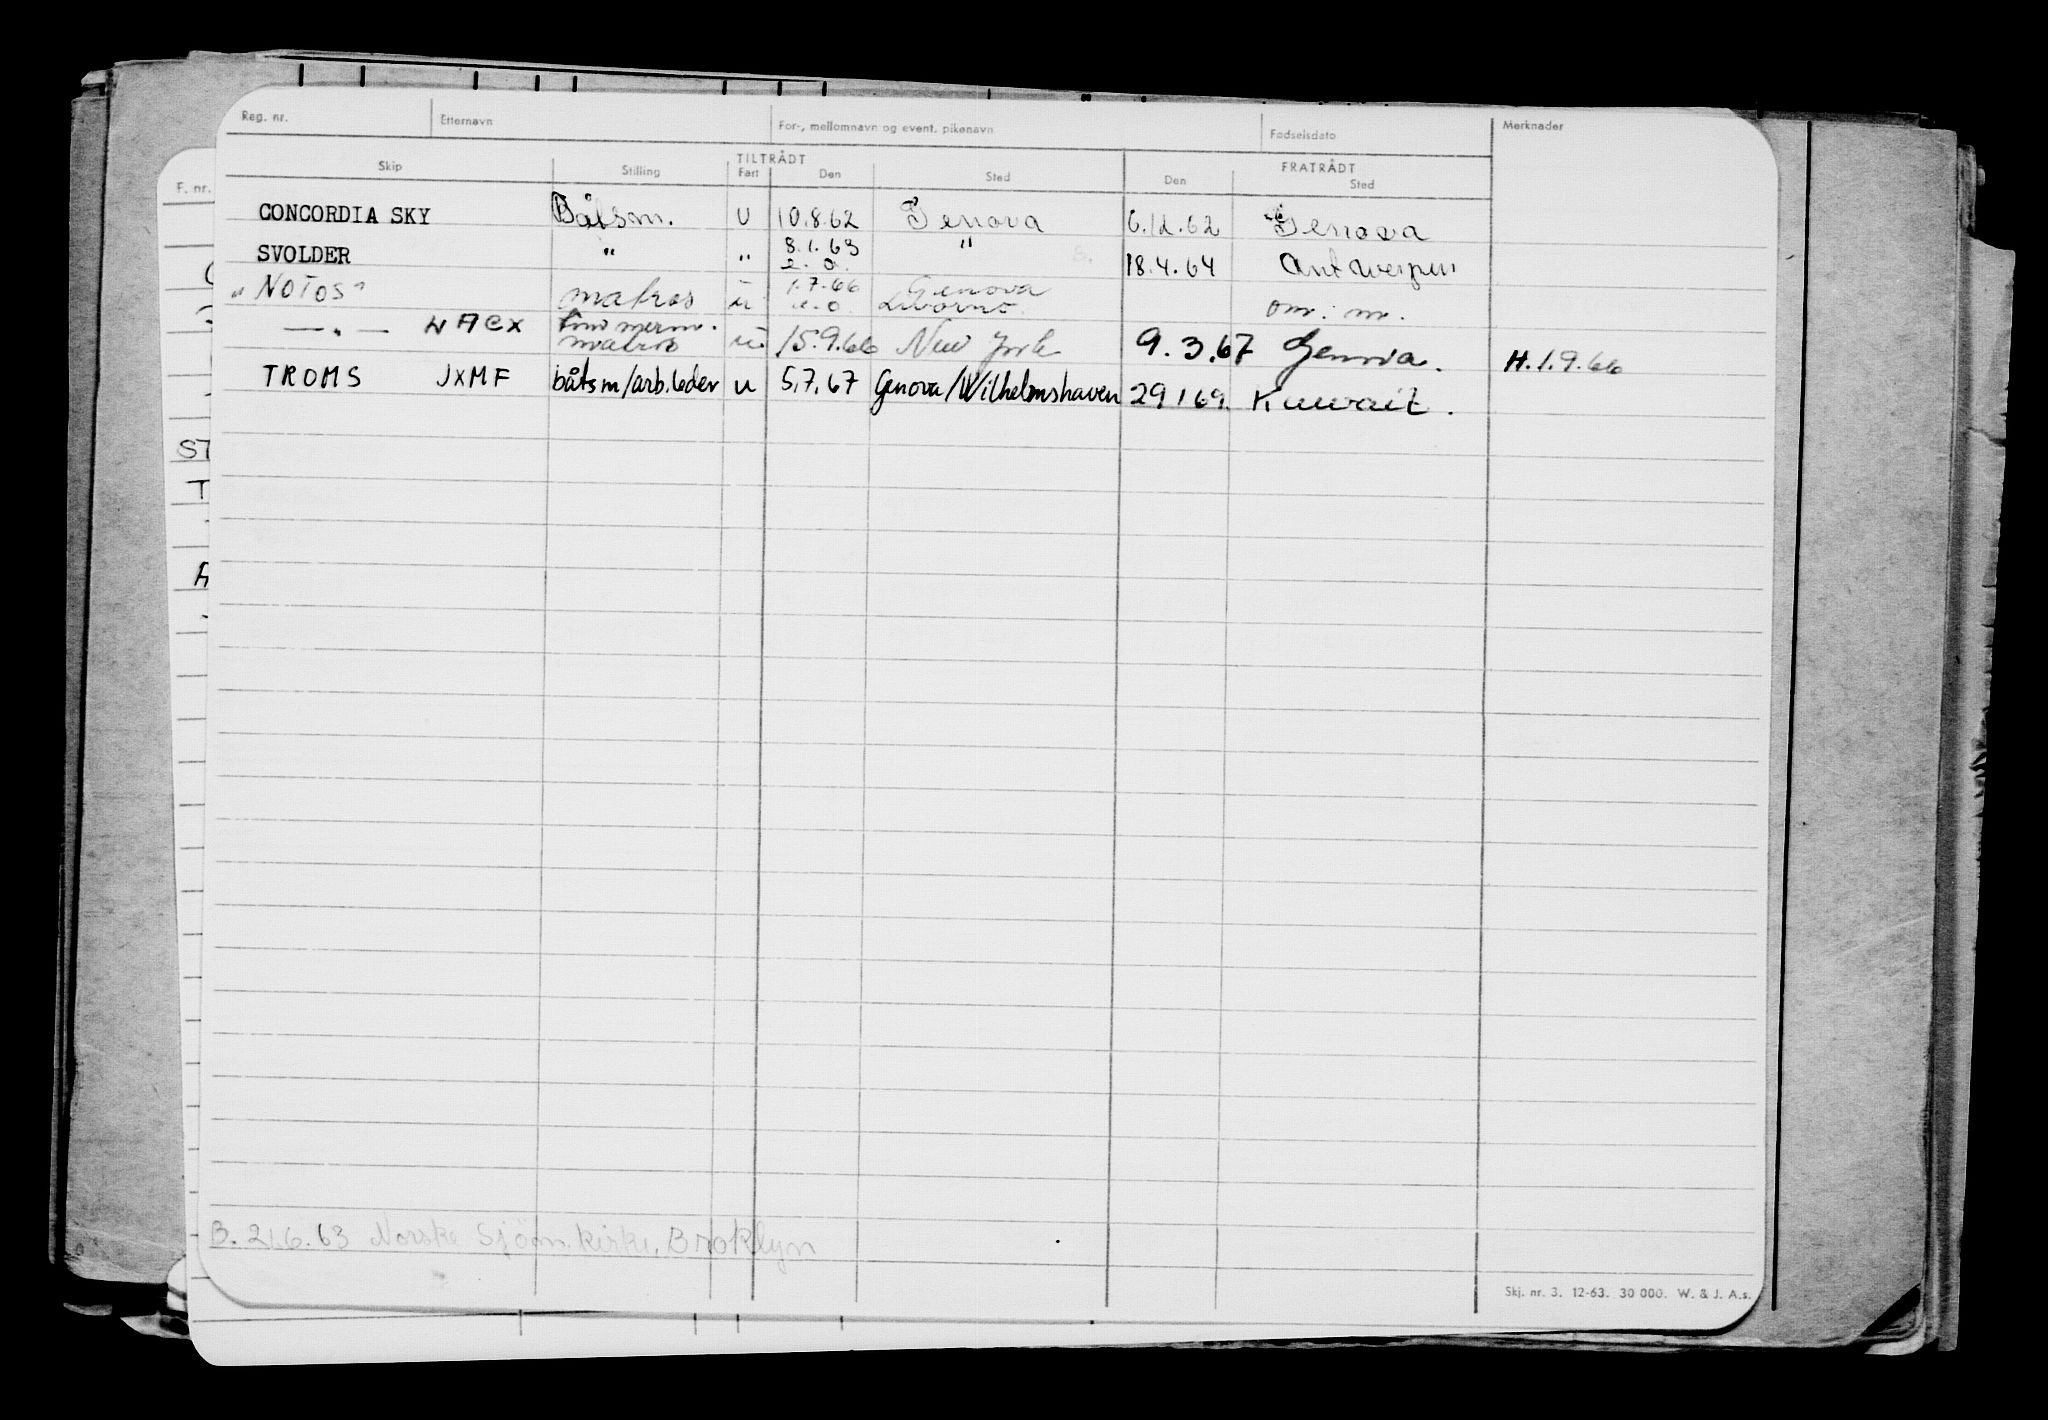 Reg. nr. Etternavn For-, mellomnavn og event. pikenavn Fødselsdato Merknader
TILTRÅDT FRATRÅDT
Skip Stilling Fart Den Sted Den Sted
F. nr.
CONCORDIA SKY Båtsm. U 10.8.62 Genova 6.12.62 Genova
SVOLDER " " 8.1.63 " 18.4.64 Antwerpen
e. o.
"NOTOS" matros u 1.7.66 Genova
e. o. Livorno om. m.
— " — tømmerm.
matros u 15.9.66 New York 9.3.67 Genova. H.1.9.66
TROMS JXMF båtsm/arb.leder u 5.7.67 Genova/Wilhelmshaven 29 1 69. Kuwait.
ST
T
B. 21.6.63 Norske Sjöm.kirke, Broklyn
Skj. nr. 3. 12-63. 30 000. W. & J. A.s.